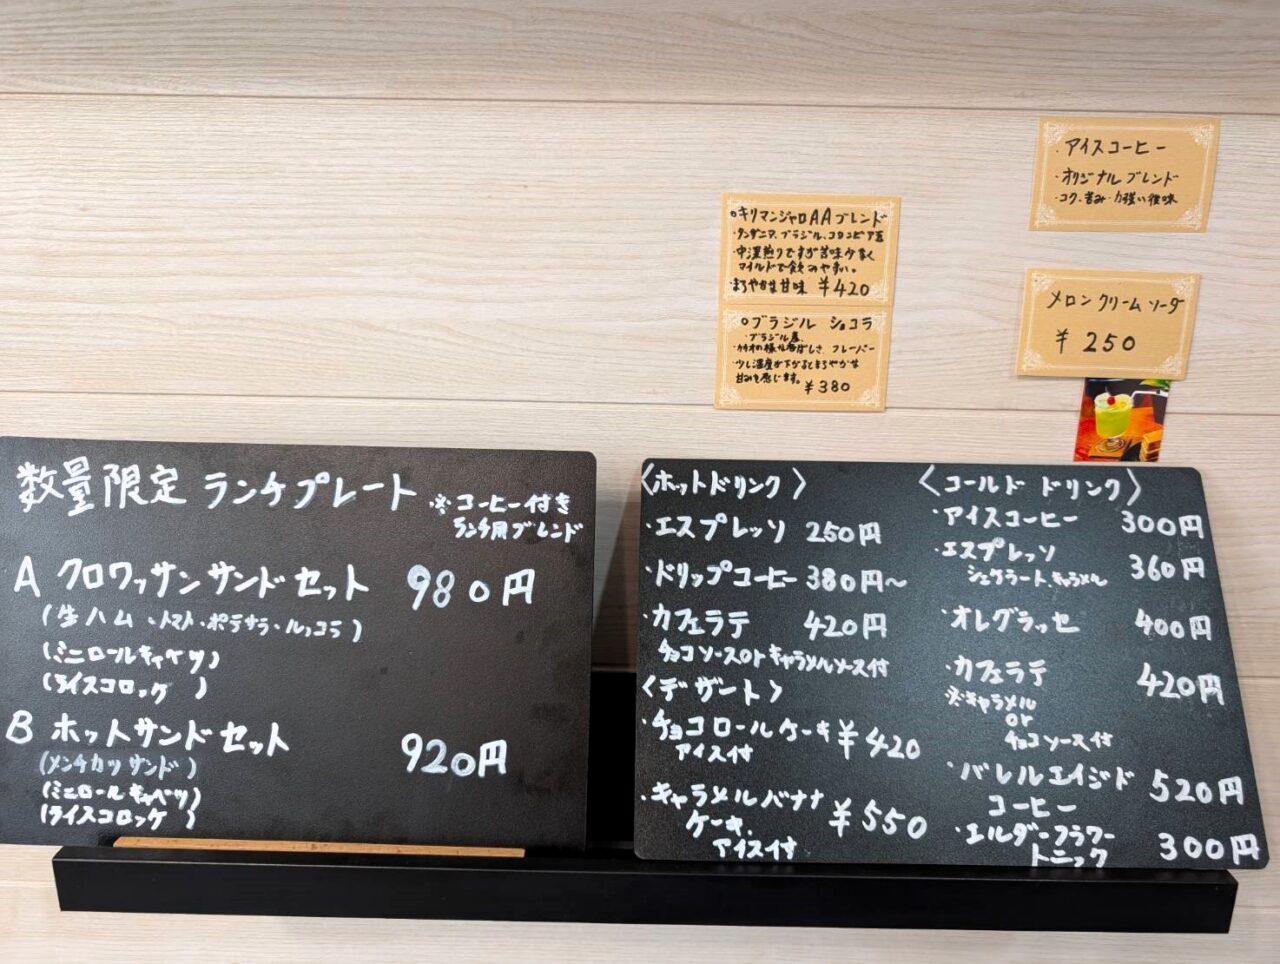 ・アイスコーヒー
・オリジナルブレンド
・コク、苦み・力強い後味
メロンクリームソーダ
¥250
○キリマンジャロAAブレンド
・タンザニア、ブラジル、コロンビア産
・中深煎りですが苦味少なく
マイルドで飲みやすい。
・まろやかな甘味 ¥420
○ブラジル ショコラ
・ブラジル産、
・カカオの様な香ばしさ、フレーバー
・少し温度が下がるとまろやかな
甘みを感じます。 ¥380
数量限定 ランチプレート
※コーヒー付き
ランチ用ブレンド
A クロワッサンサンドセット 980円
(生ハム・トマト・ポテサラ・ルッコラ)
(ミニロールキャベツ)
(ライスコロッケ)
B ホットサンドセット 920円
(メンチカツサンド)
(ミニロールキャベツ)
(ライスコロッケ)
〈ホットドリンク〉
・エスプレッソ 250円
・ドリップコーヒー 380円〜
・カフェラテ 420円
チョコソースorキャラメルソース付
〈デザート〉
・チョコロールケーキ ¥420
アイス付
・キャラメルバナナ
ケーキ、 ¥550
アイス付
〈コールドドリンク〉
・アイスコーヒー 300円
・エスプレッソ 360円
シェケラート、キャラメル
・オレグラッセ 400円
・カフェラテ 420円
※キャラメル
or
チョコソース付
・バレルエイジド 520円
コーヒー
・エルダーフラワー
トニック 300円